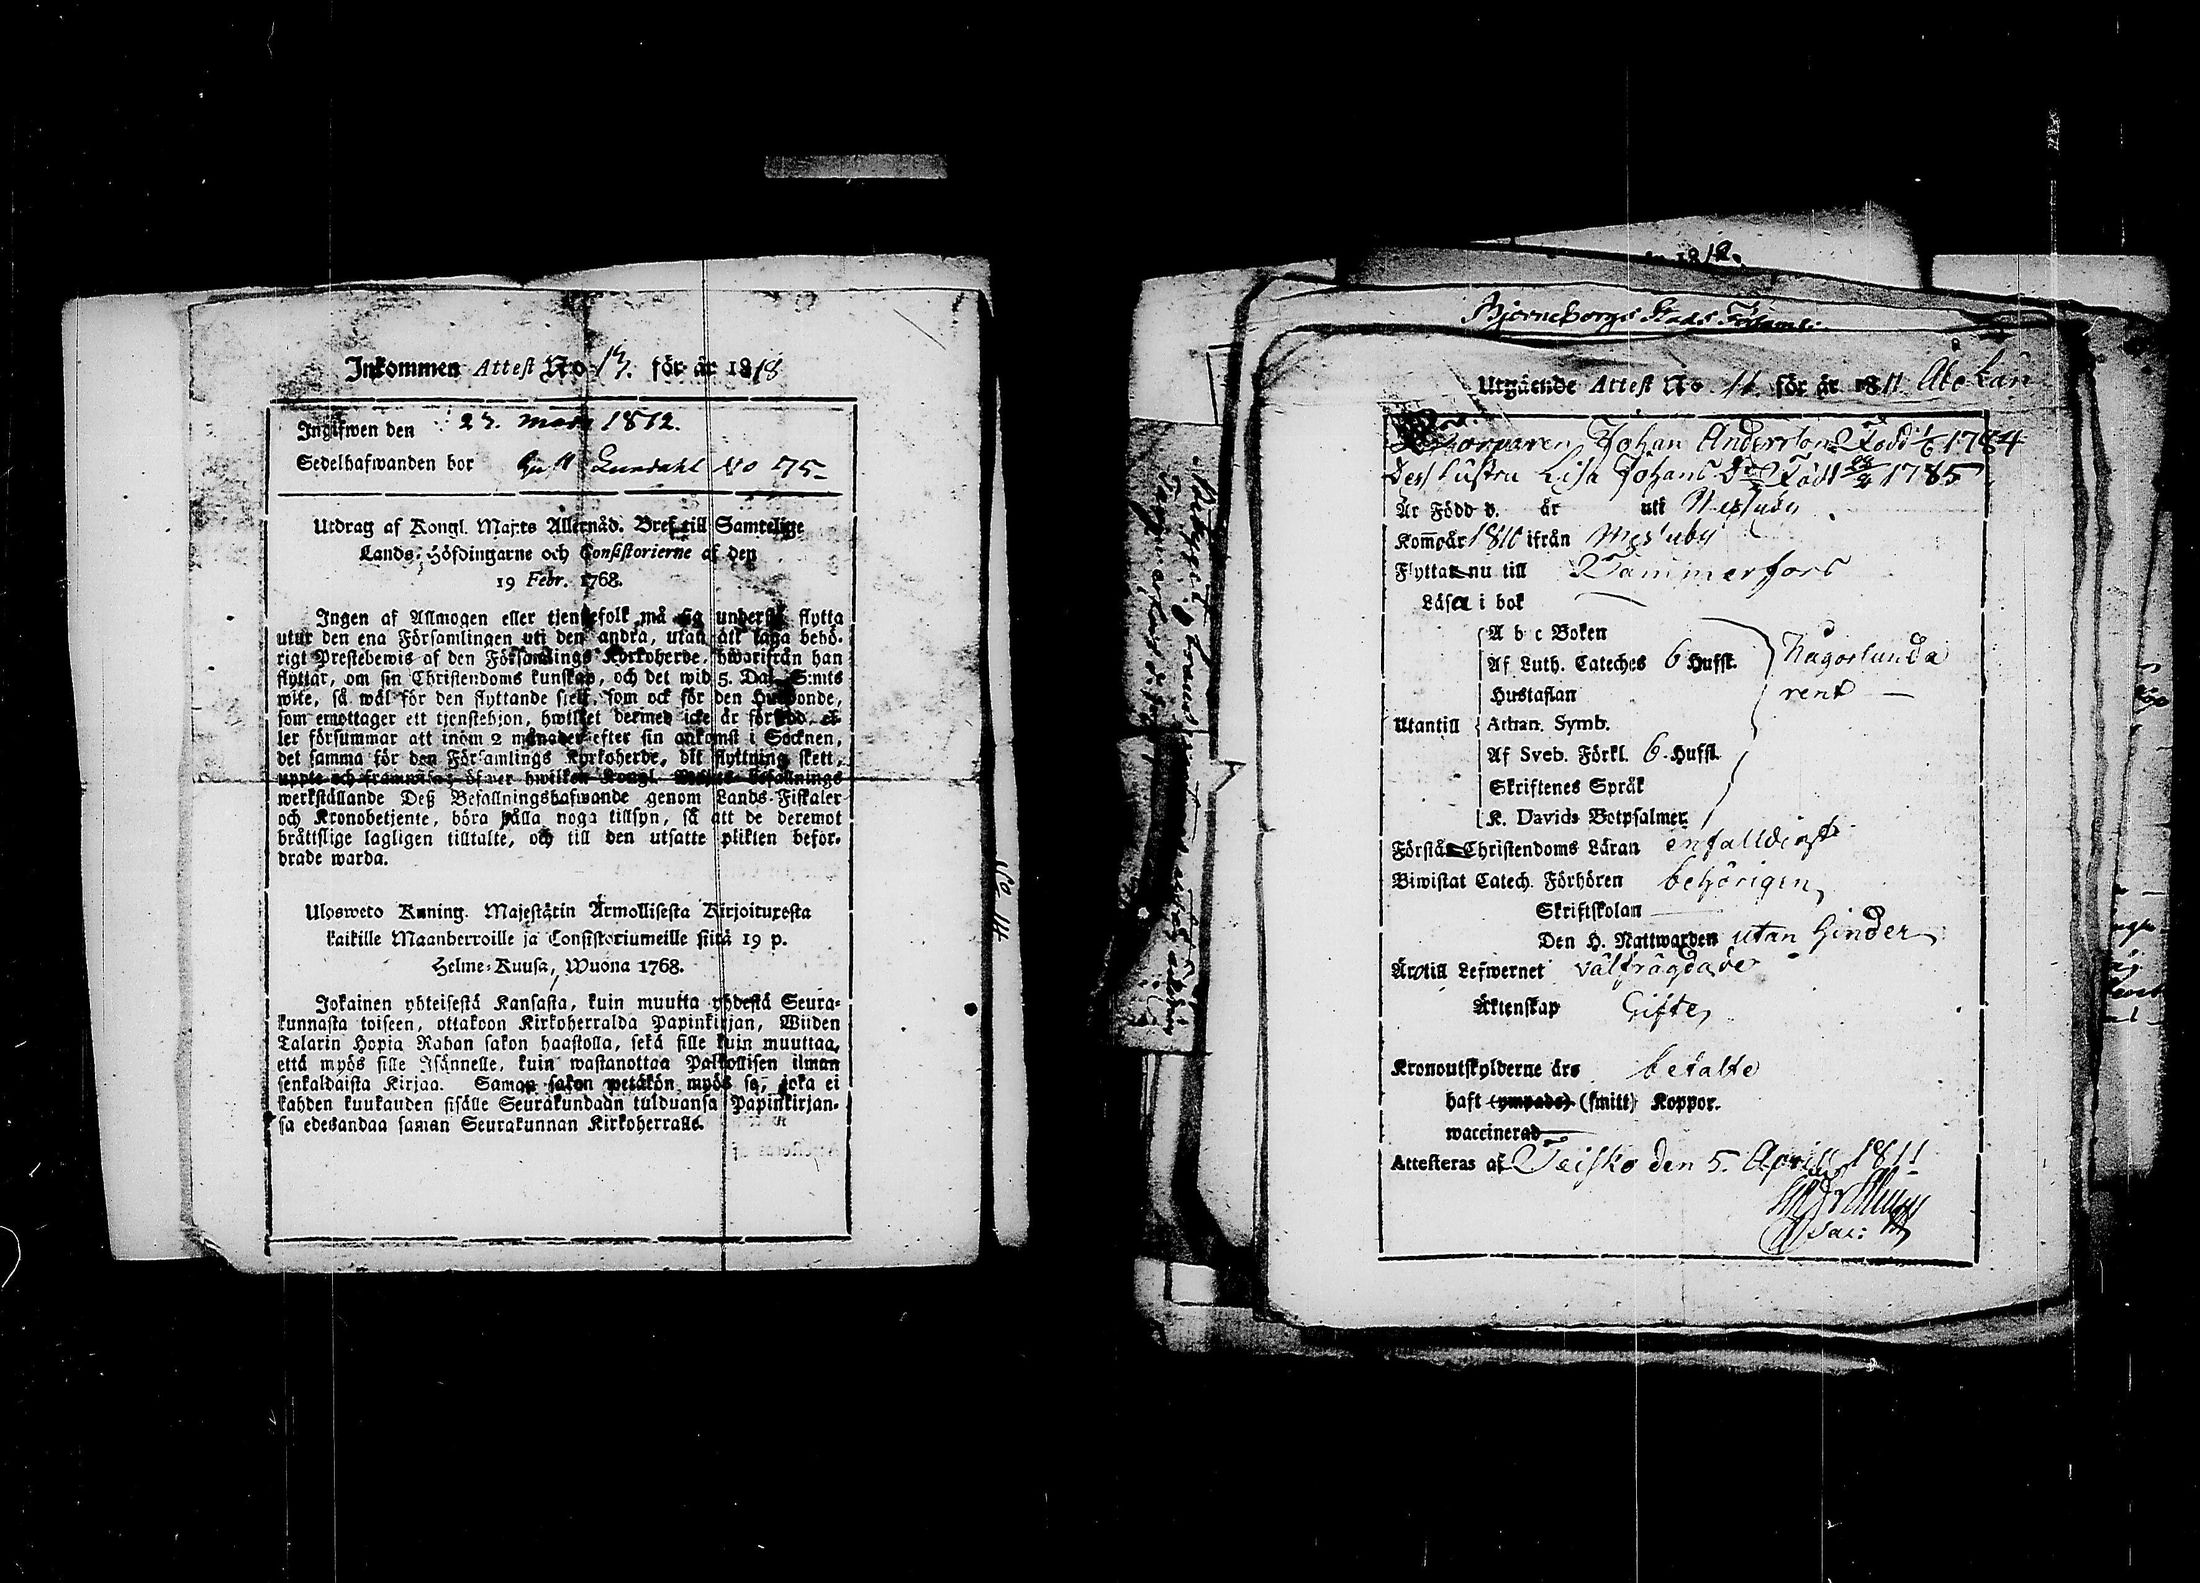 Inkommen Attest No 13. för år 1818
Ingifwen den 23. mars 1812.
Sedelhafwanden bor Gust Lundahl No 75
Utdrag af Kongl. Maj:ts Allernåd. Bref till Samtelige
Lands-Höfdingarne och Consistorierne af den
19 Febr. 1768.
Ingen af Allmogen eller tjenstefolk må sig understå flytta
utur den ena Församlingen uti den andra, utan att taga behö-
rigt Prestebewis af den Församlings Kyrkoherde, hwarifrån han
flyttar, om sin Christendoms kunskap, och det wid 5. Dal. S:mts
wite, så wäl för den flyttande sielf, som ock för den Husbonde,
som emottager ett tjenstehjon, hwilket dermed icke är försedd, el-
ler försummar att inom 2 månader efter sin ankomst i Socknen,
det samma för den Församlings Kyrkoherde, dit flyttning skett,
uppte och framwisa; öfwer hwilken Kongl. Maj:ts befallnings
werkställande Deß Befallningshafwande genom Lands-Fiskaler
och Kronobetjente, böra hålla noga tillsyn, så att de deremot
bråttslige lagligen tilltalte, och till den utsatte plikten befor-
drade warda.
Ulosweto Kuning. Majestätin Armollisesta Kirjoituxesta
kaikille Maanherroille ja Consistoriumeille siitä 19 p.
Helme-Kuusa, Wuona 1768.
Jokainen yhteisestä Kansasta, kuin muutta yhdestä Seura-
kunnasta toiseen, ottakoon Kirkoherralda Papinkirjan, Wiiden
Talarin Hopia Rahan sakon haastolla, sekä sille kuin muuttaa,
että myös sille Isännelle, kuin wastanottaa Palkollisen ilman
senkaldaista Kirjaa. Saman sakon wetäkön myös se, joka ei
kahden kuukauden sisälle Seurakundaan tulduansa Papinkirjan-
sa edesandaa saman Seurakunnan Kirkoherralle.
No 14
Björneborgs Stads Församl:
Utgående Attest No 11. för år 1811 Åbo Län
Johan Andersson Född 1/6 1784
Dess hustru Lisa Johans Dr Född 28/2 1785
Är Född d. år uti Messuby
Kom år 1810 ifrån Messuby
Flyttar nu till Tammerfors
Läsa i bok
A b c Boken
Af Luth. Cateches 6 Hufst. Någorlunda
Hustaflan rent
Utantill Athan. Symb.
Af Sveb. Förkl. 6. Hufst.
Skriftenes Språk
K. Davids Botpsalmer
Förstår Christendoms Läran enfalldigt
Biwistat Catech. Förhören behörigen
Skriftskolan
Den H. Nattwarden utan hinder
Äro till Lefwernet välfrägdade
Äktenskap Gifte
Kronoutskylderne äro betalte
haft (ympade) (smitt) Koppor.
waccinerad
Attesteras af Teisko den 5. April 1811